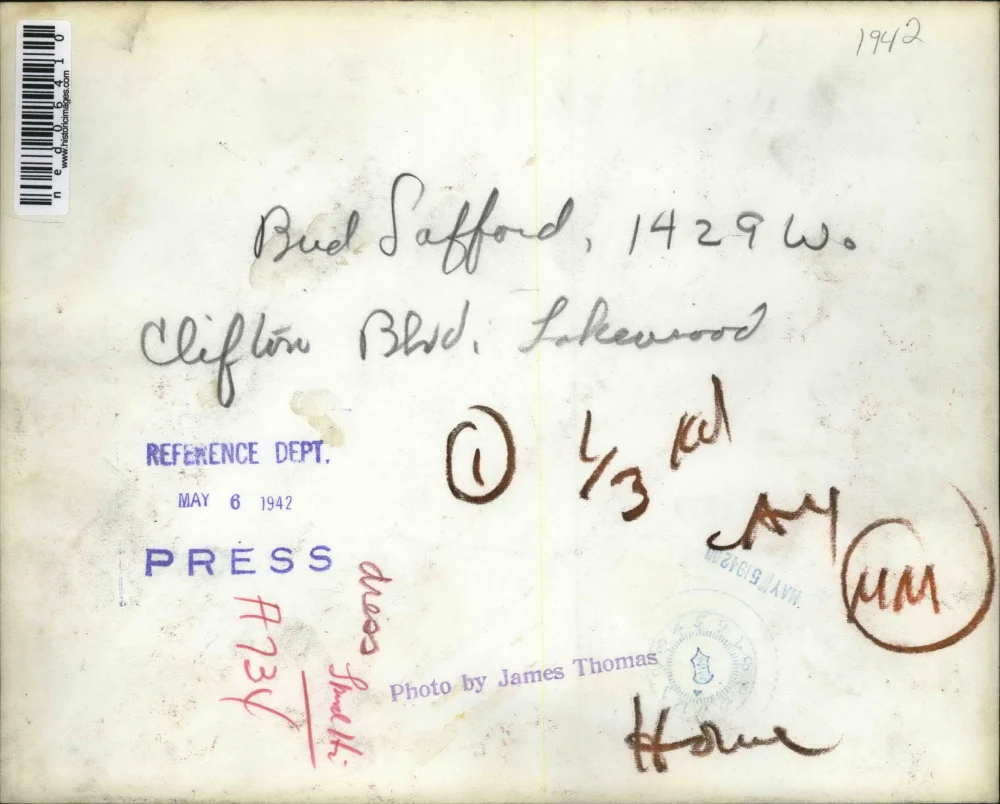 1942
n e d 0 6 4 1 0
www.historicimages.com
Bud Safford, 1429 W.
Clifton Blvd. Lakewood
REFERENCE DEPT.
MAY 6 1942
PRESS
1
1/3
MAY 5 1942
MM
dress
Photo by James Thomas
Home